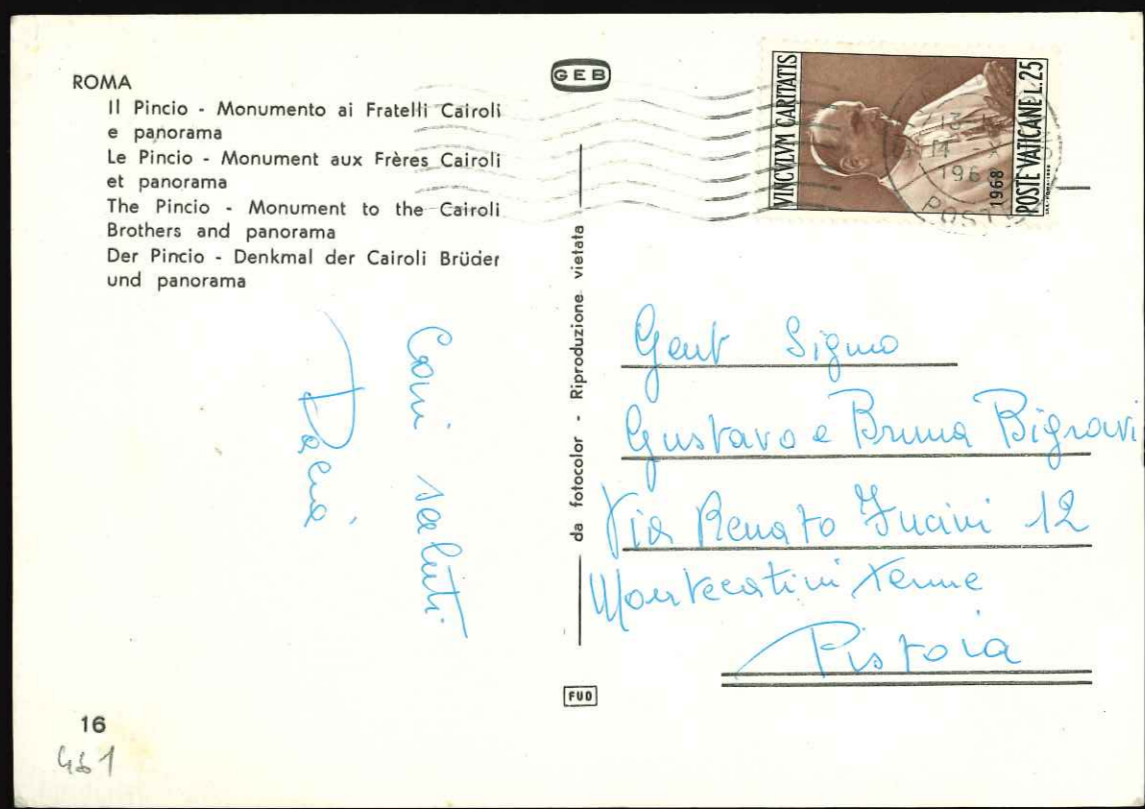 ROMA
Il Pincio - Monumento ai Fratelli Cairoli
e panorama
Le Pincio - Monument aux Frères Cairoli
et panorama
The Pincio - Monument to the Cairoli
Brothers and panorama
Der Pincio - Denkmal der Cairoli Brüder
und panorama
GEB
VINCVLVM CARITATIS
1968
POSTE VATICANE L.25
196
POSTE
da fotocolor - Riproduzione vietata
Cari saluti
Gent
Gustavo e Bruna Bigravi
Via Renato Fucini 12
Montecatini Terme
Pistoia
FUO
16